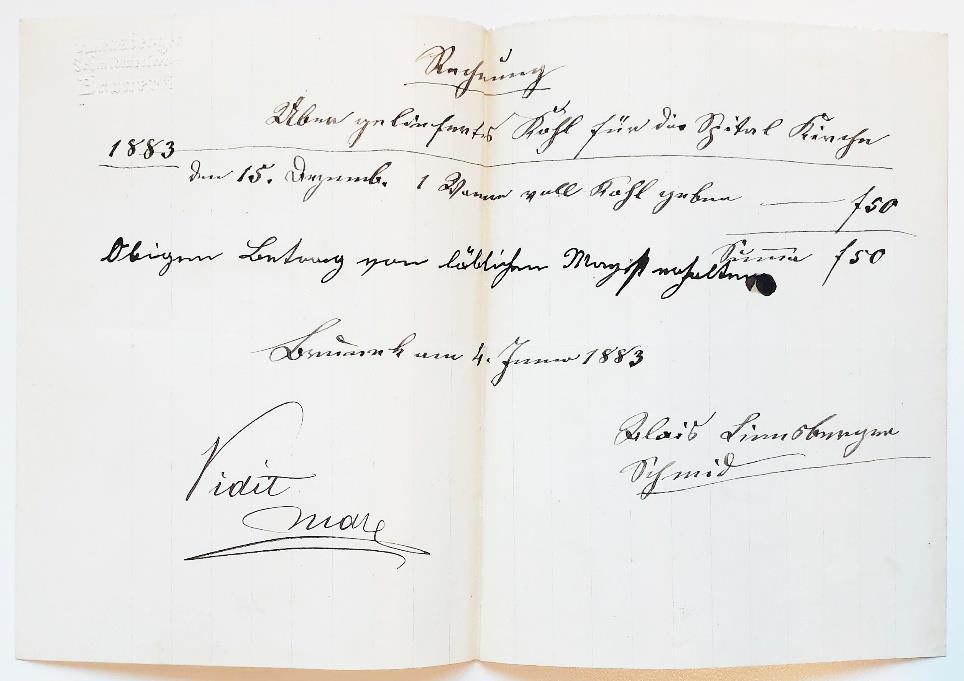 Rechnung
Über geliefertes Kohl für die Spital Kirche
1883
den 15. Dezemb. 1 Wanne voll Kohl geben — f 50
Summa f 50
Obigen Betrag von löblichen Magist erhalten
Bruneck am 4. Jänner 1883
Alois Linnsberger
Schmid
Vidit